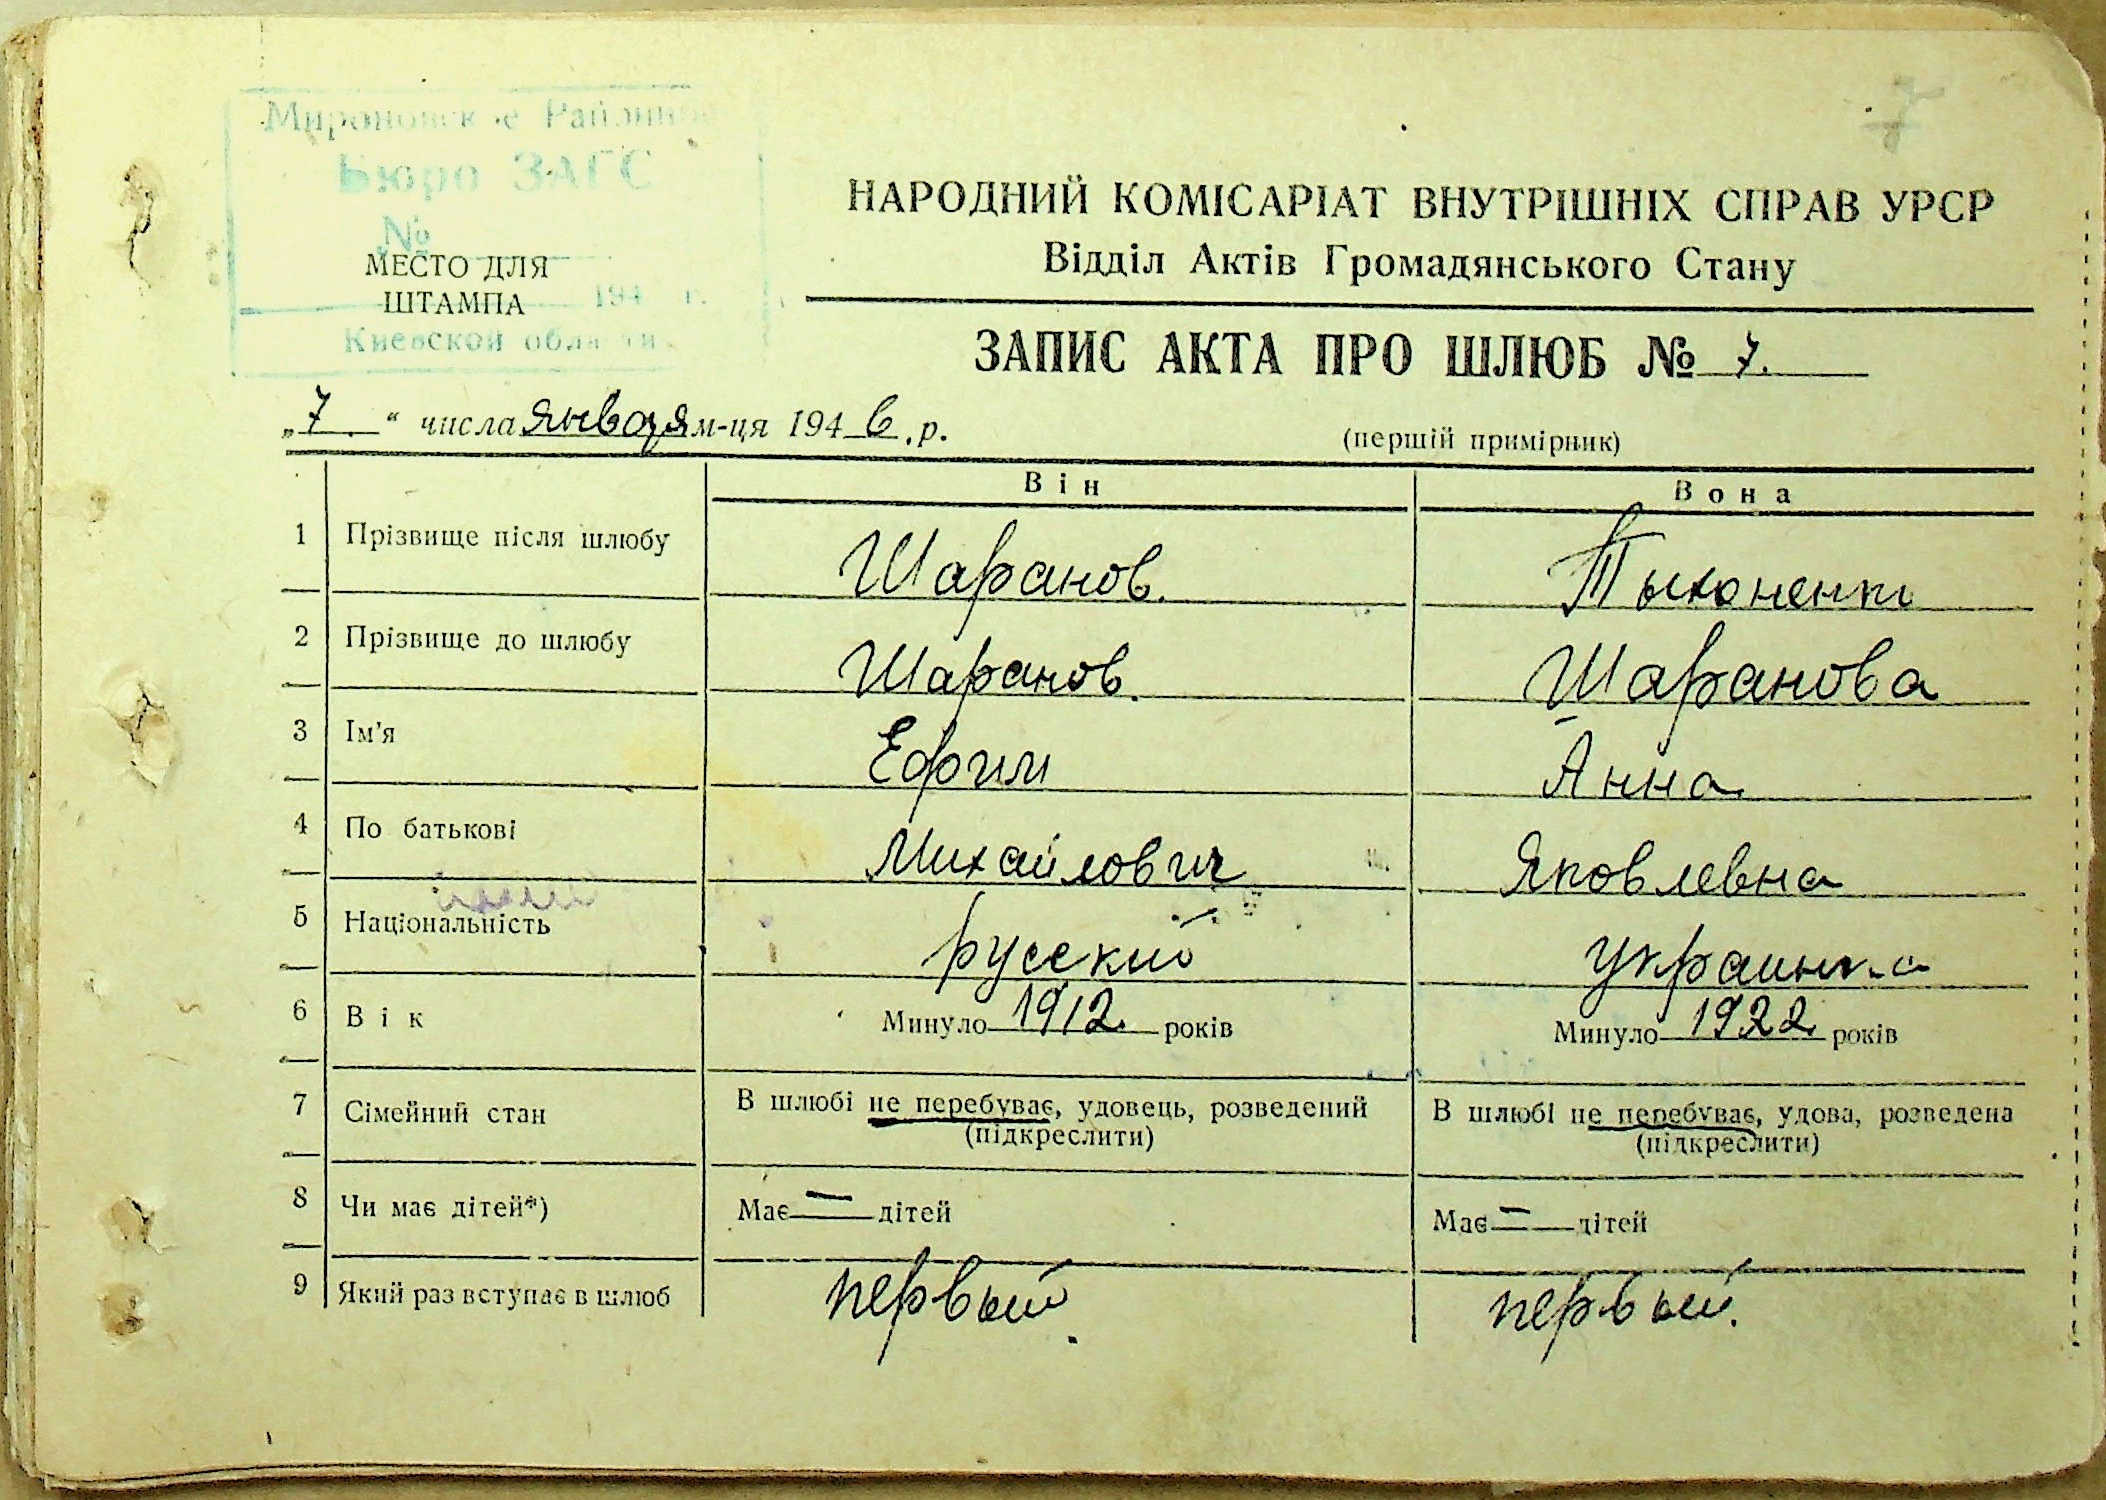 7
Мироновское Районное
Бюро ЗАГС
№
МЕСТО ДЛЯ
ШТАМПА
194 г.
Киевской области
НАРОДНИЙ КОМІСАРІАТ ВНУТРІШНІХ СПРАВ УРСР
Відділ Актів Громадянського Стану
ЗАПИС АКТА ПРО ШЛЮБ № 7.
„7“ числа января м-ця 1946.р.
(першій примірник)
Він Вона
1 Прізвище після шлюбу Шаранов. Тыхоненко
2 Прізвище до шлюбу Шаранов. Шаранова
3 Ім'я Ефим Анна
4 По батькові Михайлович Яковлевна
5 Національність русский украинка
6 Вік Минуло 1912. років Минуло 1922 років
7 Сімейний стан В шлюбі не перебуває, удовець, розведений В шлюбі не перебуває, удова, розведена
(підкреслити) (підкреслити)
8 Чи має дітей*) Має — дітей Має — дітей
9 Який раз вступає в шлюб первый. первый.